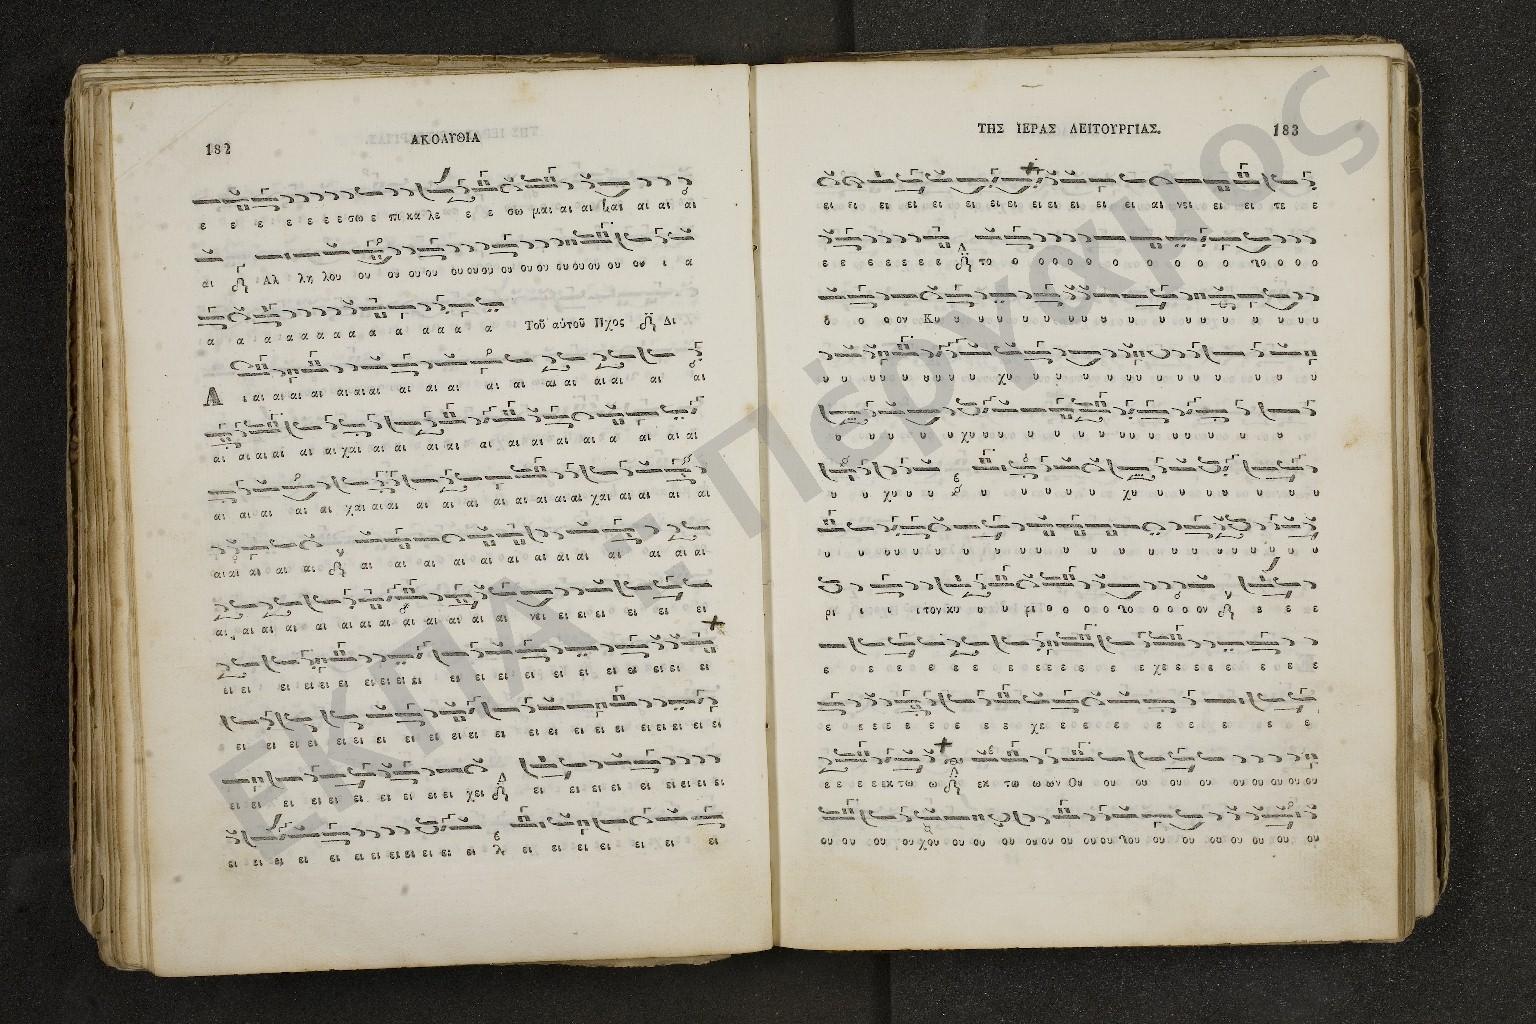 182
ΑΚΟΛΥΘΙΑ
ε ε ε ε ε ε ε σω ε πι κα λε ε ε σω μαι αι αι μαι αι αι αι
αι Αλ λη λου ου ου ου ου ου ου ου ου ου ου ου ου ου ου ι α
α α α α α α α α α α α α α Τοῦ αὐτοῦ Ηχος Δι
Δ ι αι αι αι αι αι αι αι αι αι αι αι αι αι αι αι αι αι αι
αι αι αι αι αι αι χαι αι αι αι αι αι αι αι αι αι α αι αι αι
αι αι αι αι αι χαι αι αι αι αι αι αι αι αι αι αι χαι αι αι αι αι
αι αι αι αι αι αι αι αι αι αι αι αι αι αι αι αι
αι αι αι αι αι αι αι αι αι αι αι αι νει ει ει ει ει ει ει
ει ει ει ει ει ει ει ει ει ει ει ει ει ει ει ει ει ει ει ει
ει ει ει ει ει ει ει ει ει ει ει ει ει ει ει ει ει ει ει ει
ει ει ει ει ει ει ει ει ει χει ει ει ει ει ει ει ει
ει ει ει ει ει ει ει ει ει ει ει ει ει ει ει ει ει ει ει
ΤΗΣ ΙΕΡΑΣ ΛΕΙΤΟΥΡΓΙΑΣ.
183
ει ει ει ει ει ει ει ει ει ει ει ει αι νει ει ει τε ε
ε ε ε ε ε ε ε το ο ο ο ο ο ο ο ο ο ο χο ο ο ο
ο ο ο ον Κυ υ υ υ υ υ υ υ υ υ υ υ υ υ υ υ υ
υ υ υ υ υ υ χυ υ υ υ υ υ υ υ υ υ υ υ υ υ
υ υ υ υ υ υ χυ υ υ υ υ υ υ υ υ υ υ υ υ υ
υ υ χυ υ υ υ υ υ υ υ υ υ χυ υ υ υ υ υ υ
υ υ υυ υ υ υ υ υ υ υ υ υ υ υ υ υ υ υ υ
ρι ι ι ι τον κυ υ υ ρι ο ο ο ο χο ο ο ο ον ε ε ε
ε ε ε ε ε ε ε ε ε ε ε ε ε χε ε ε ε ε ε ε ε
ε ε ε ε ε ε ε ε ε χε ε ε ε ε ε ε ε ε ε
ε ε ε ε εκ τω ω εκ τω ω ων Ου ου ου ου ου ου ου ου ου ου
ου ου ου ου χου ου ου ου ου ου ου ου ου χου ου ου ου ου ου ου ου
ΕΚΠΑ - Πέργαμος